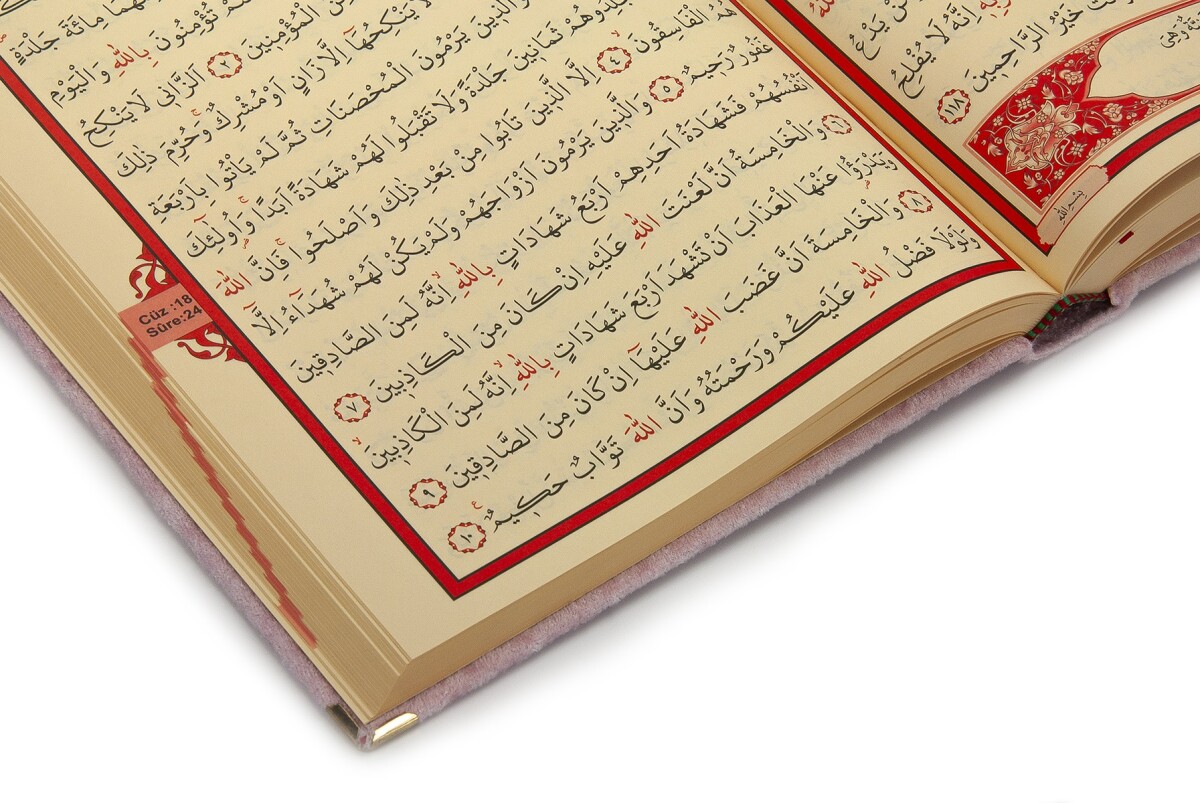 يَدْعُ
اِنَّهُ لَا يُفْلِحُ
خَيْرُ الرَّاحِمِينَ ﴿١١٨﴾
بِسْمِ اللّٰهِ
مِائَةَ جَلْدَةٍ
تُؤْمِنُونَ بِاللّٰهِ وَالْيَوْمِ
الْمُؤْمِنِينَ ﴿٢﴾ اَلزَّانِي لَا يَنْكِحُ
لَا يَنْكِحُهَٓا اِلَّا زَانٍ اَوْ مُشْرِكٌۚ وَحُرِّمَ ذٰلِكَ
وَالَّذِينَ يَرْمُونَ الْمُحْصَنَاتِ ثُمَّ لَمْ يَأْتُوا بِاَرْبَعَةِ
ثَمَانِينَ جَلْدَةً وَلَا تَقْبَلُوا لَهُمْ شَهَادَةً اَبَدًاۚ وَاُولٰٓئِكَ
هُمُ الْفَاسِقُونَ ﴿٤﴾ اِلَّا الَّذِينَ تَابُوا مِنْ بَعْدِ ذٰلِكَ وَاَصْلَحُواۚ فَاِنَّ اللّٰهَ
غَفُورٌ رَحِيمٌ ﴿٥﴾ وَالَّذِينَ يَرْمُونَ اَزْوَاجَهُمْ وَلَمْ يَكُنْ لَهُمْ شُهَدَٓاءُ اِلَّٓا
اَنْفُسُهُمْ فَشَهَادَةُ اَحَدِهِمْ اَرْبَعُ شَهَادَاتٍ بِاللّٰهِۙ اِنَّهُ لَمِنَ الصَّادِقِينَ
﴿٦﴾ وَالْخَامِسَةُ اَنَّ لَعْنَتَ اللّٰهِ عَلَيْهِ اِنْ كَانَ مِنَ الْكَاذِبِينَ ﴿٧﴾
وَيَدْرَؤُا عَنْهَا الْعَذَابَ اَنْ تَشْهَدَ اَرْبَعَ شَهَادَاتٍ بِاللّٰهِۙ اِنَّهُ لَمِنَ الْكَاذِبِينَۙ
﴿٨﴾ وَالْخَامِسَةَ اَنَّ غَضَبَ اللّٰهِ عَلَيْهَٓا اِنْ كَانَ مِنَ الصَّادِقِينَ ﴿٩﴾
وَلَوْلَا فَضْلُ اللّٰهِ عَلَيْكُمْ وَرَحْمَتُهُ وَاَنَّ اللّٰهَ تَوَّابٌ حَكِيمٌ ﴿١٠﴾
Cüz :18
Sûre:24